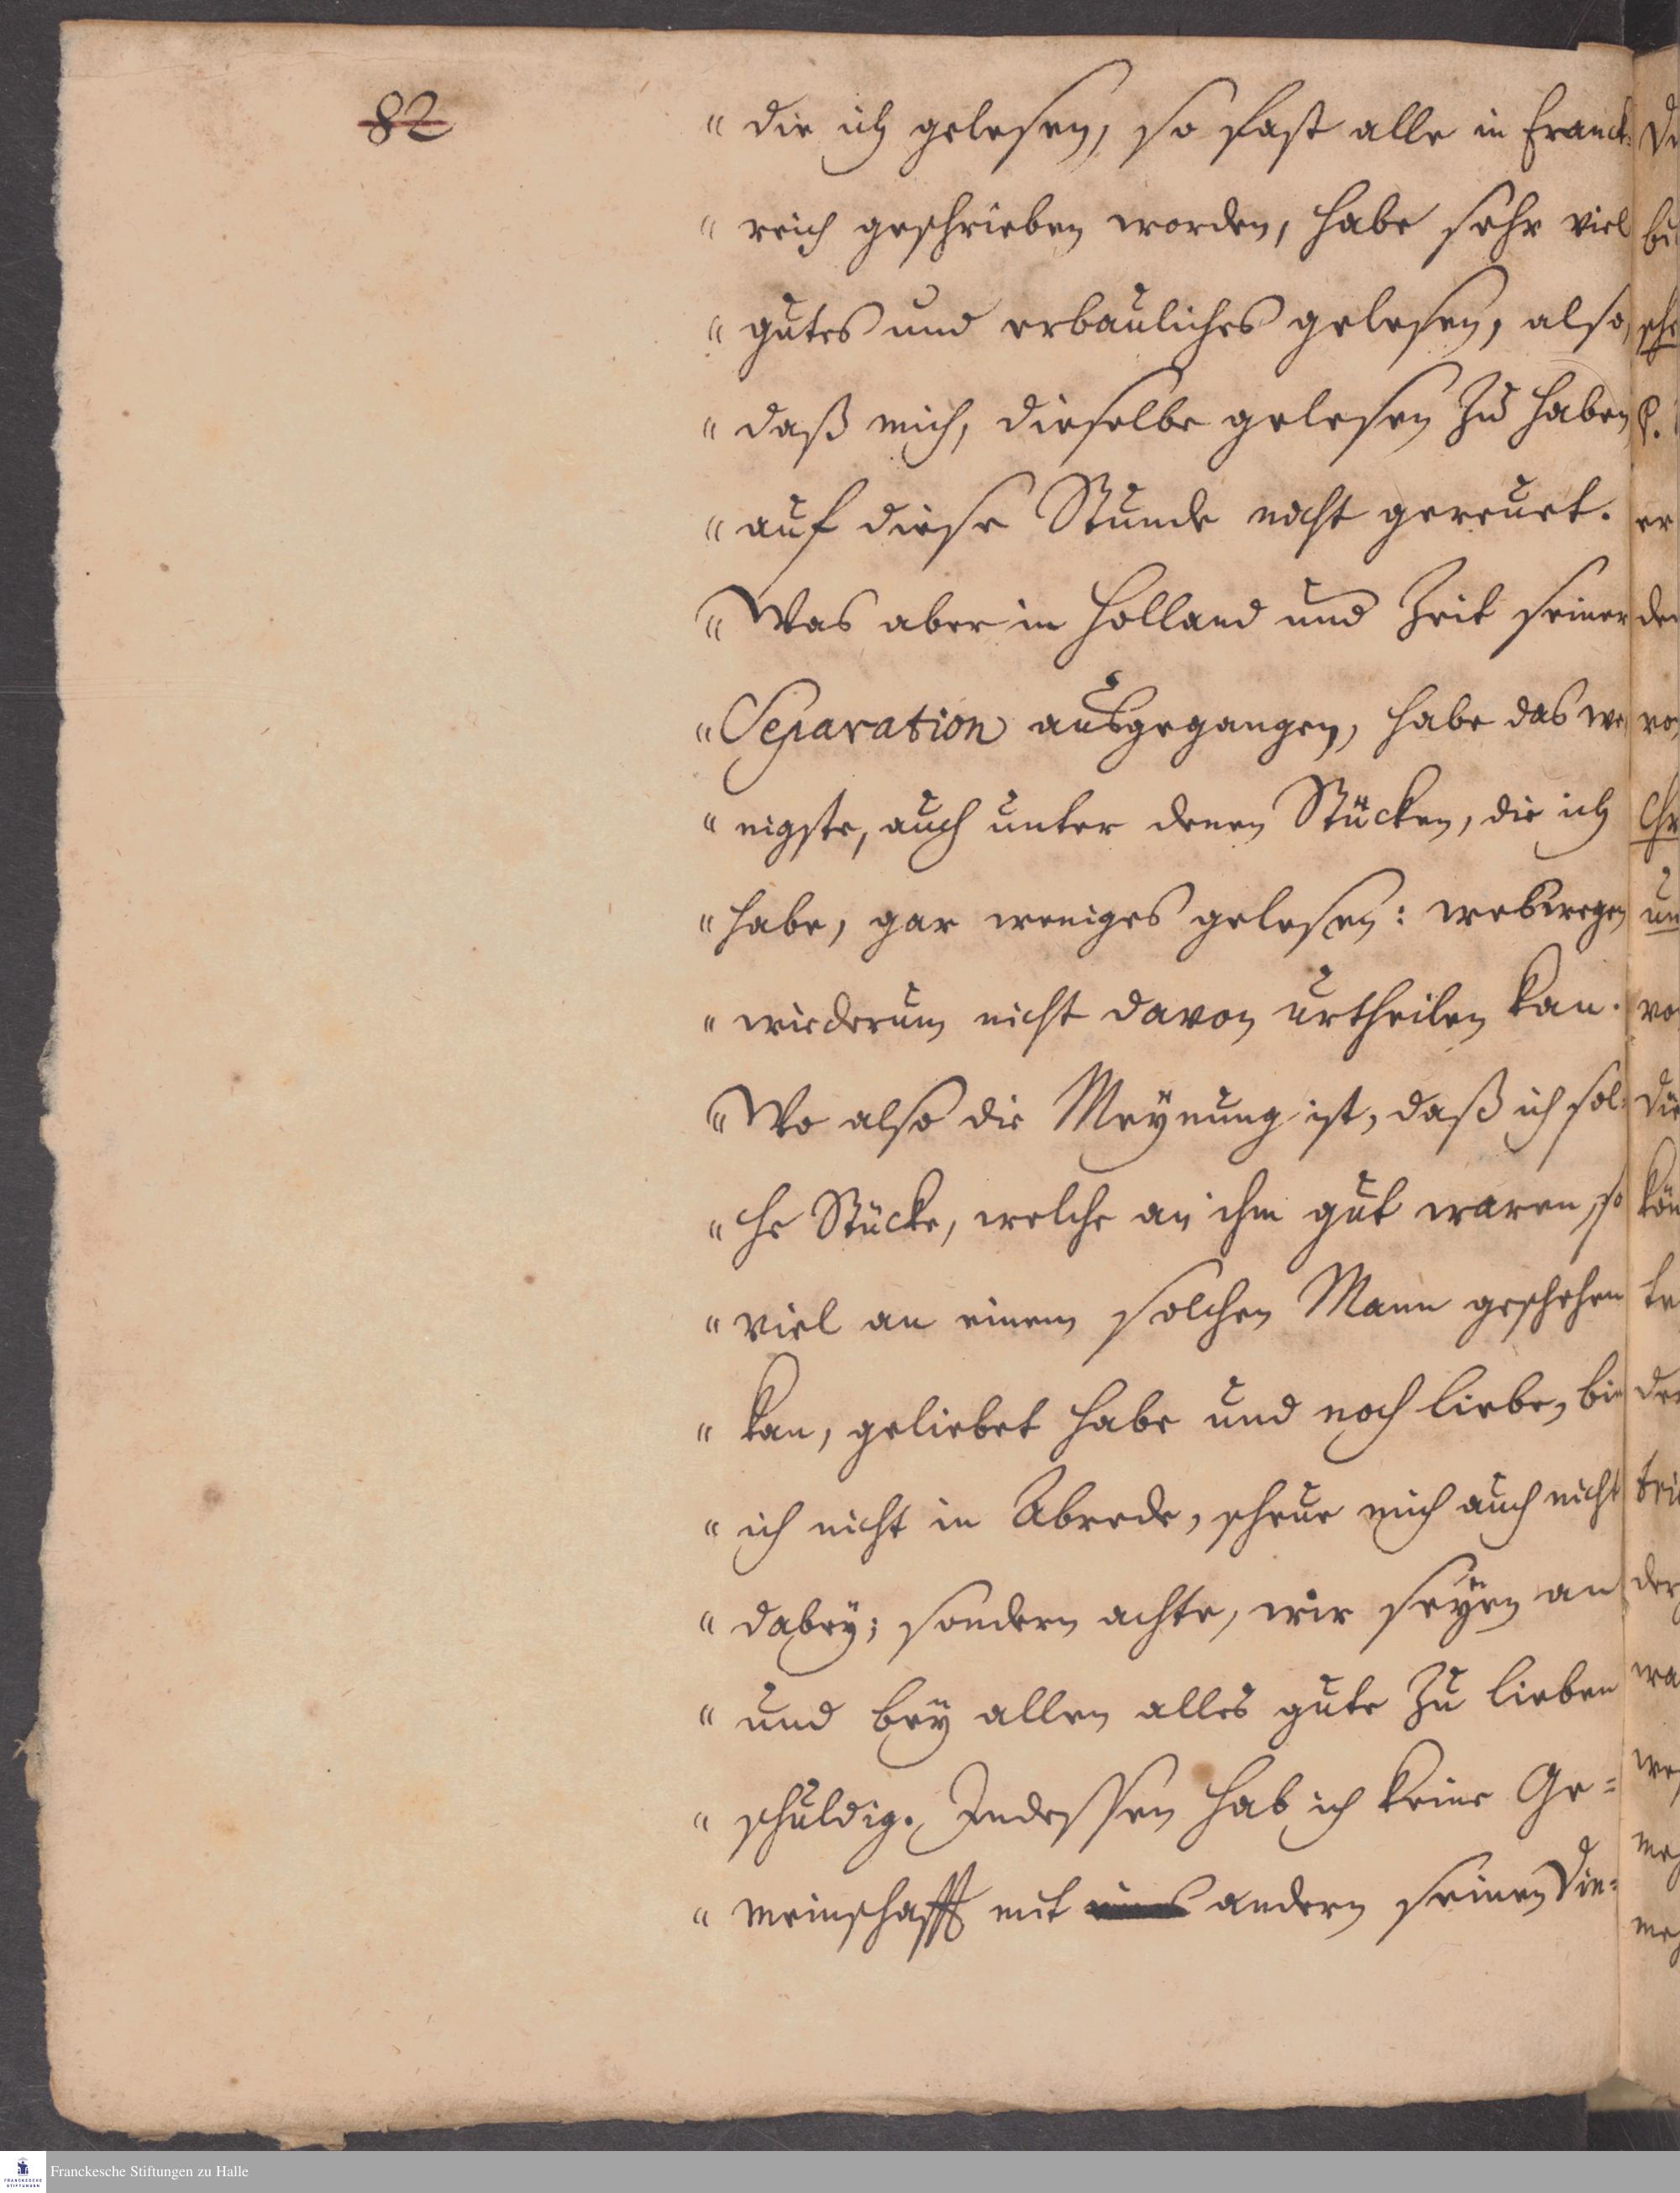 82
" die ich gelesen, so fast alle in Franck-
" reich geschrieben worden, habe sehr viel
" gutes und erbauliches gelesen, also,
" daß mich, dieselbe gelesen zu haben
" auf diese Stunde nicht gereuet.
" Was aber in Holland und Zeit seiner
" Separation ausgegangen, habe das we-
" nigste, auch unter denen Stücken, die ich
" habe, gar weniges gelesen: weßwegen
" wiederum nicht davon urtheilen kan.
" Wo also die Meÿnung ist, daß ich sol-
" che Stücke, welche an ihm gut waren, so
" viel an einem solchen Mann geschehen
" kan, geliebet habe und noch liebe, bin
" ich nicht in Abrede, scheue mich auch nicht
" dabeÿ; sondern achte, wir seÿen an
" und beÿ allen alles gute zu lieben
" schuldig. Indessen hab ich keine Ge=
" meinschafft mit andern seinen Din-
Franckesche Stiftungen zu Halle
FRANCKESCHE
STIFTUNGEN